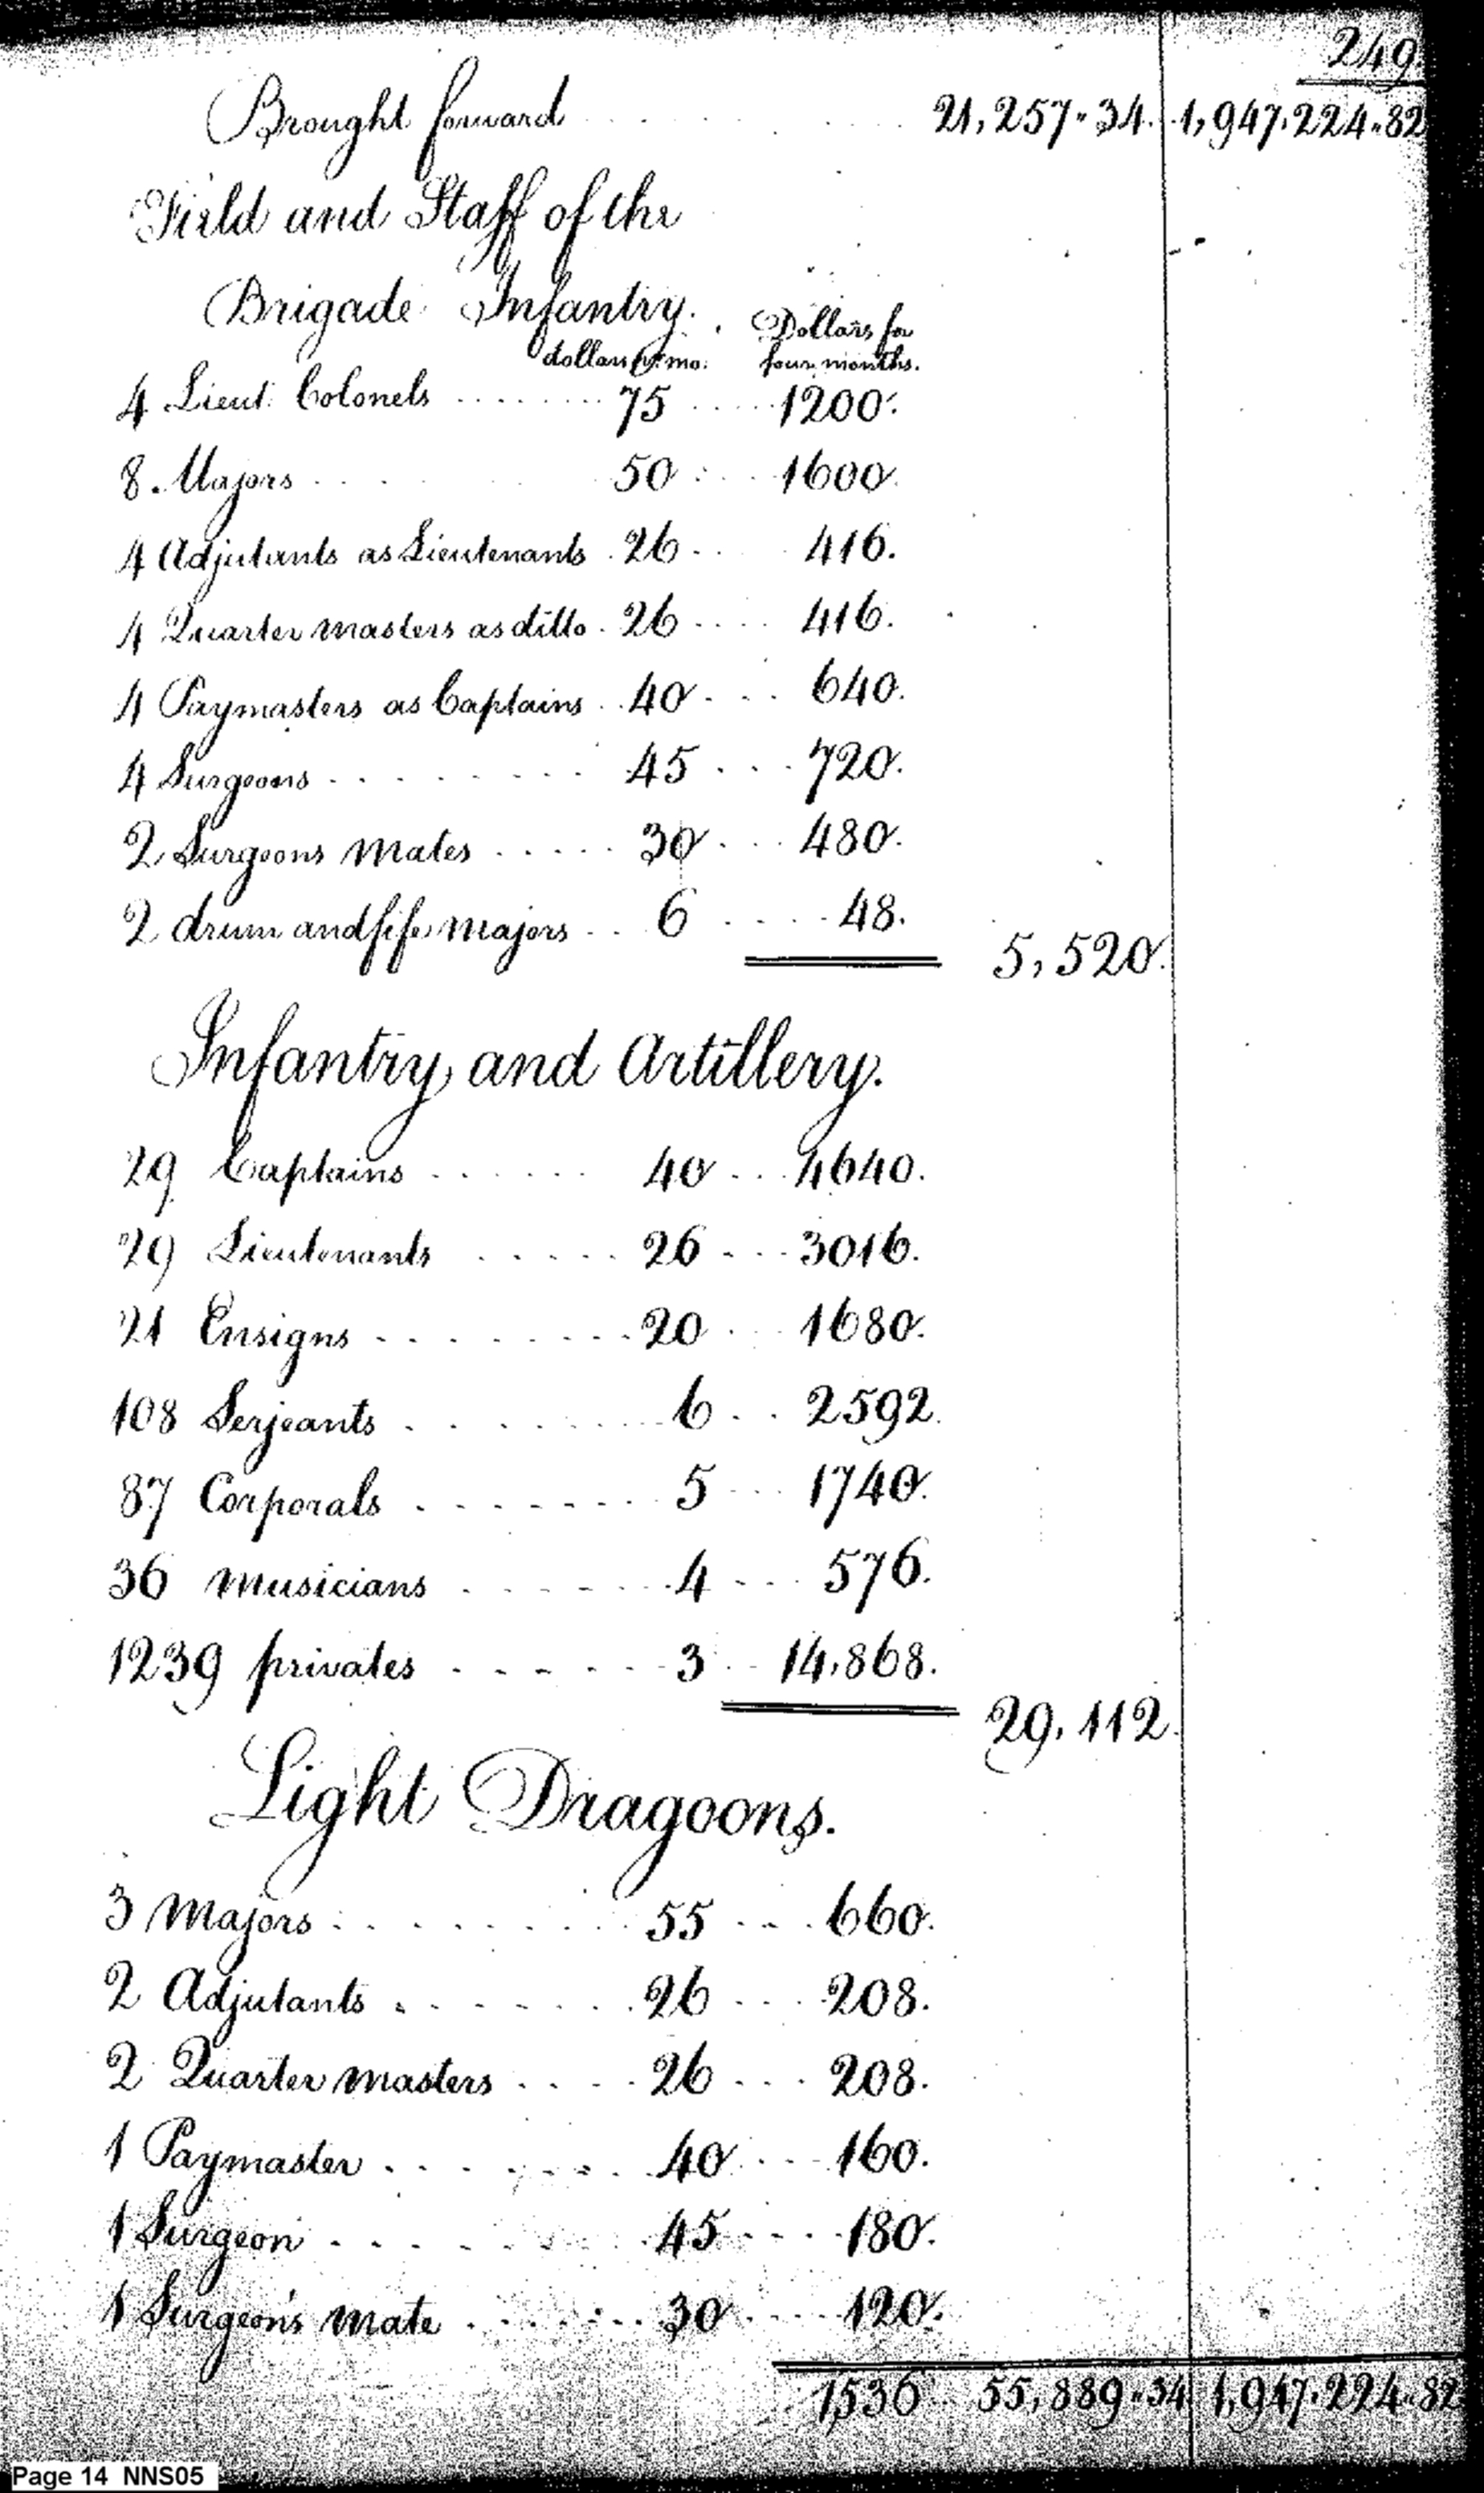 249.
Brought forward . . . . . 21,257.34. 1,947.224.82
Field and Staff of the
Brigade Infantry.
dollars pr. mo. Dollars for four months.
4 Lieut. Colonels . . . . . . . . 75 . . . . 1200.
8. Majors . . . . 50 . . . 1600.
4 Adjutants as Lieutenants . 26 . . . 416.
4 Quarter masters as ditto . 26 . . . . 416.
4 Paymasters as Captains . . 40 . . . 640.
4 Surgeons . . . . . . . . 45 . . . 720.
2 Surgeons Mates . . . . . 30 . . . 480.
2 drum and fife majors . . 6 . . . . 48.
5,520.
Infantry and Artillery.
29 Captains . . . . . . 40 . . . 4640.
29 Lieutenants . . . . . 26 . . . 3016.
21 Ensigns . . . . . . . . 20 . . . 1680.
108 Serjeants . . . . . . . . 6 . . 2592.
87 Corporals . . . . . . . 5 . . . 1740.
36 Musicians . . . . . . . 4 . . . 576.
1239 privates . . . . . . . 3 . . 14,868.
29,112.
Light Dragoons.
3 Majors . . . . . . . . . 55 . . . 660.
2 Adjutants . . . . . . . 26 . . . 208.
2 Quarter masters . . . . 26 . . . 208.
1 Paymaster . . . . . . . . 40 . . . 160.
1 Surgeon . . . . . . . . 45 . . . . 180.
1 Surgeon's Mate . . . . . . 30 . . . . 120.
1,536 55,889.34 1,947.224.82
Page 14 NNS05